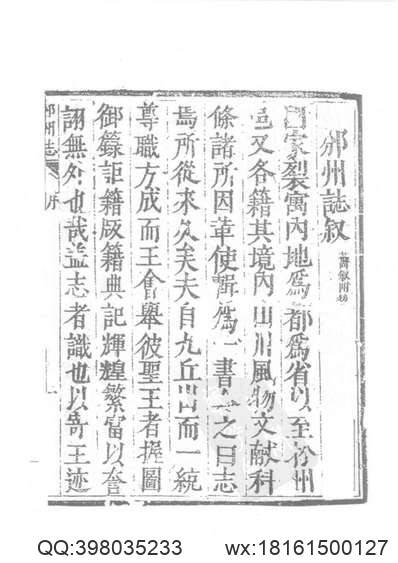 州誌叙
舊叙附
家裂寓內地爲都爲省以至於州
邑又各籍其境內山川風物文獻科
條諸所因革使輯爲一書之曰志
焉所從來久矣夫自九丘出而一統
尊職方成而王會舉彼聖王者握圖
御籙詎籍版籍典記輝煌繁富以誇
詡無外也哉葢志者識也以寄王迹
州志
序
QQ:398035233 wx:18161500127